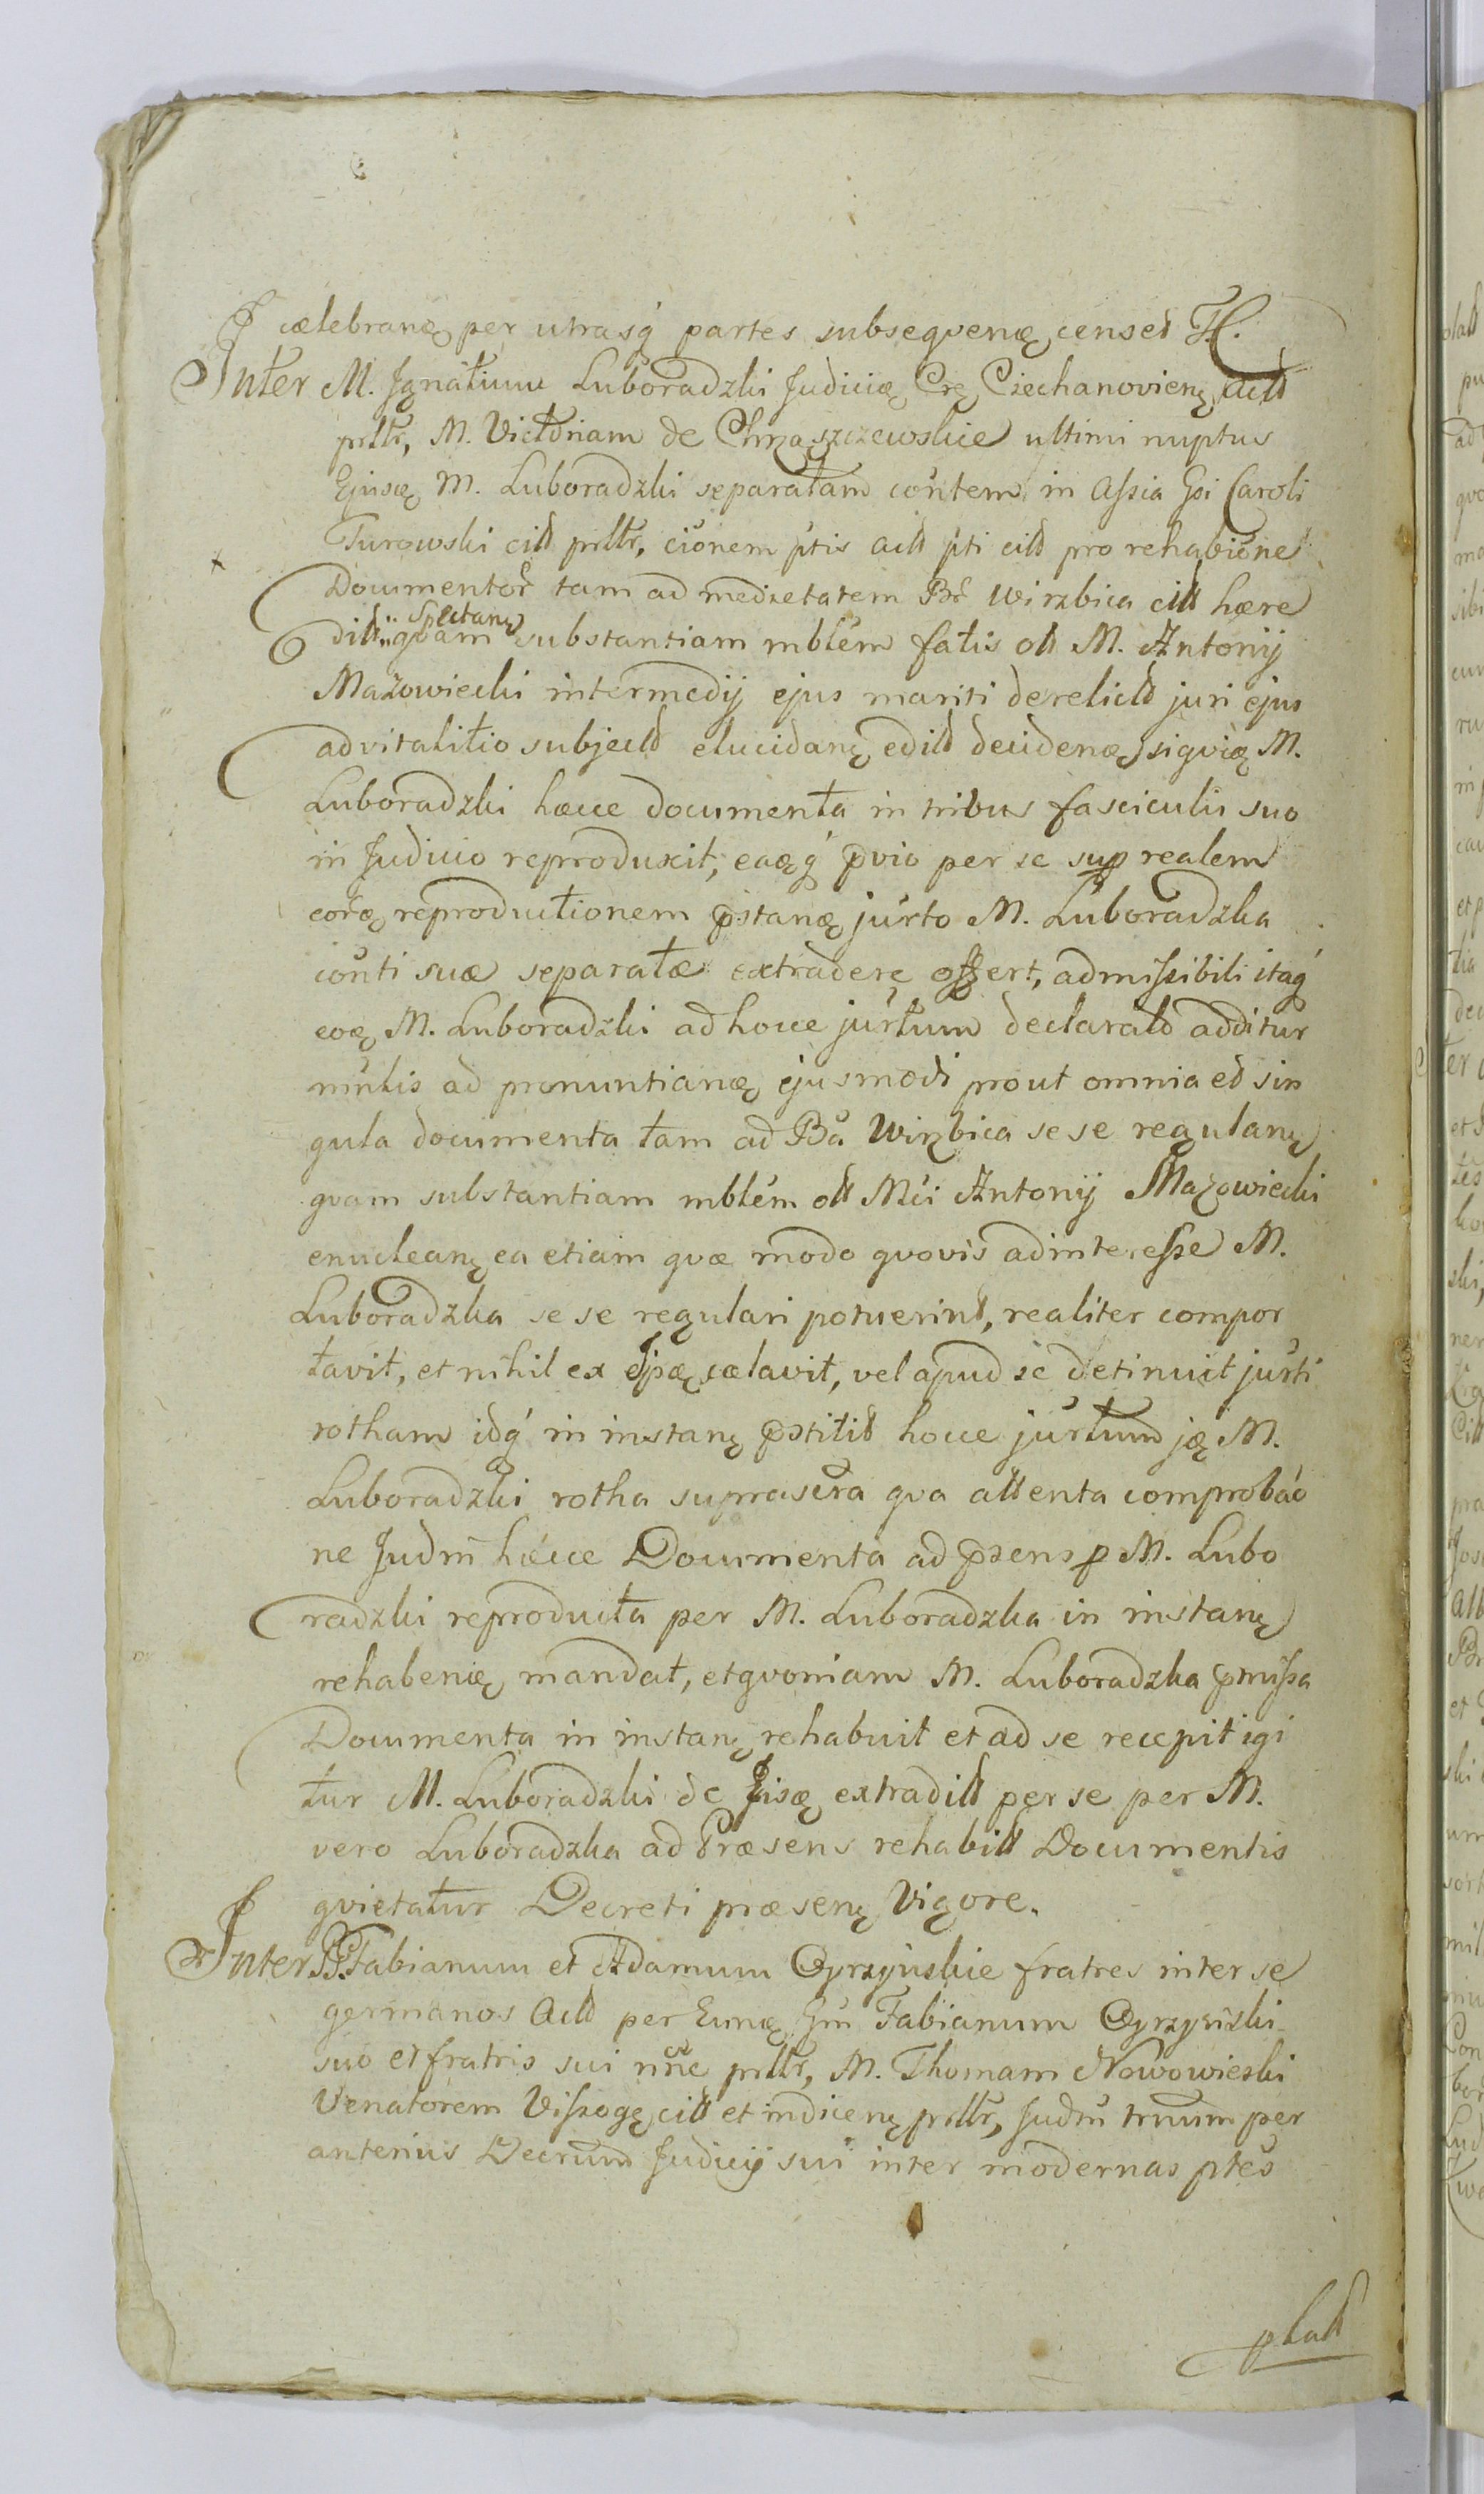 cælebranę per utrasq́ partes subseqvenę censet H.
Inter M. Ignatium Luboradzki Judicię Cię Ciechanovienę Actt
prltr, M. Victoriam de Chrząszczewskie ultimi nuptus
Ejusę M. Luboradzki separatam contem in assia Gsi Caroli
Turowski citt prltr, cionem ptis actt pti citt pro rehabitione
Documentor tam ad medietatem Br Wirzbica citt hære
ditt: spectanę
qvam substantiam mblem fatis ott M. Antonij
Mazowiecki intermedij ejus mariti derelictt juri ejus
advitalitio subjectt elucidanę editt decidenę, siqvię M.
Luboradzki hæcce documenta in tribus fasciculis suo
in Judicio reproduxit, eaęq́ pvio per se sup realem
eorę reproductionem pstanę jurto M. Luboradzka
conti suæ separatæ extradere offert, admissibili itaq́
eoę M. Luboradzki ad hocce jurtum declaratt additur
mntis ad pronuntianę ejusmodi prout omnia et sin
gula documenta tam ad Ba Wirzbica sese regulanę
qvam substantiam mblem ott Mci Antonij Mazowiecki
enucleanę ea etiam qvæ modo qvovis ad interesse M.
Luboradzka se se regulari potuerint, realiter compor
tavit, et nihil ex Ipsę cælavit, vel apud se detinuit jurti
rotham idq́ in instanę pstitit hocce jurtum ję M.
Luboradzki rotha suprascra qva attenta comprobáo
ne Judm hæcce Documenta ad psens p M. Lubo
radzki reproducta per M. Luboradzka in instanę
rehabenię mandat, et qvoniam M. Luboradzka pmissa
Documenta in instanę rehabuit et ad se recepit igi
tur M. Luboradzki de Eisę extraditt per se per M.
vero Luboradzka ad Præsens rehabitt Documentis
qvietatur Decreti præsenę Vigore.
Inter GG. Fabianum et Adamum Oyrzyńskie fratres inter se
germanos Actt per Eunę Gm Fabianum Oyrzyński
suo et fratris sui nne prltr, M. Thomam Nowowieski
Venatorem Vissogę citt et indicenę prltr, Judm trnum per
anterius Decrum Judicij sui inter modernas ptes
platt